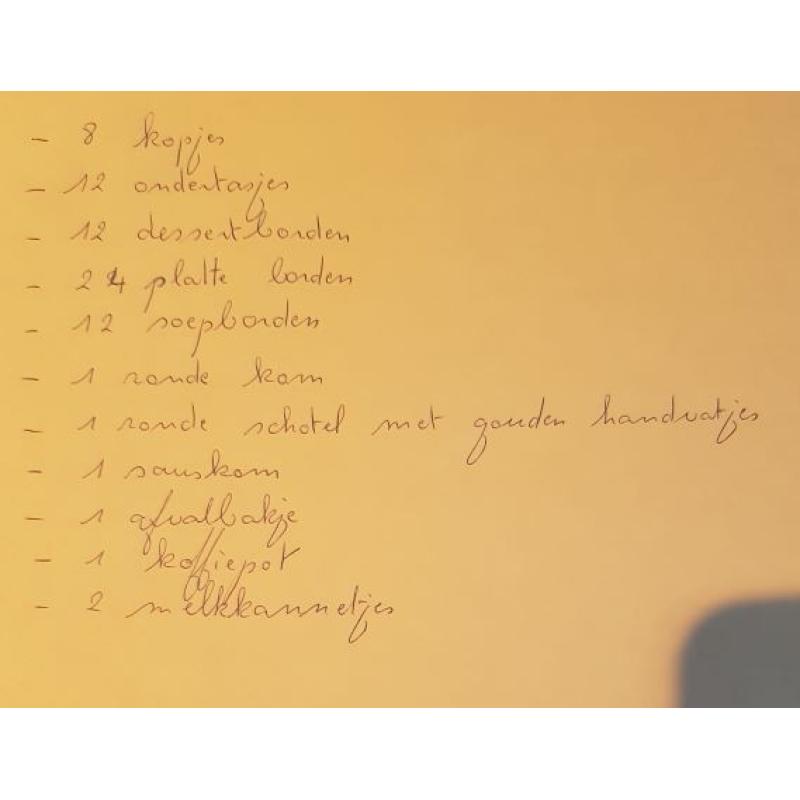 - 8 kopjes
- 12 ondertasjes
- 12 dessertborden
- 24 platte borden
- 12 soepborden
- 1 ronde kom
- 1 ronde schotel met gouden handvatjes
- 1 sauskom
- 1 afvalbakje
- 1 koffiepot
- 2 melkkannetjes